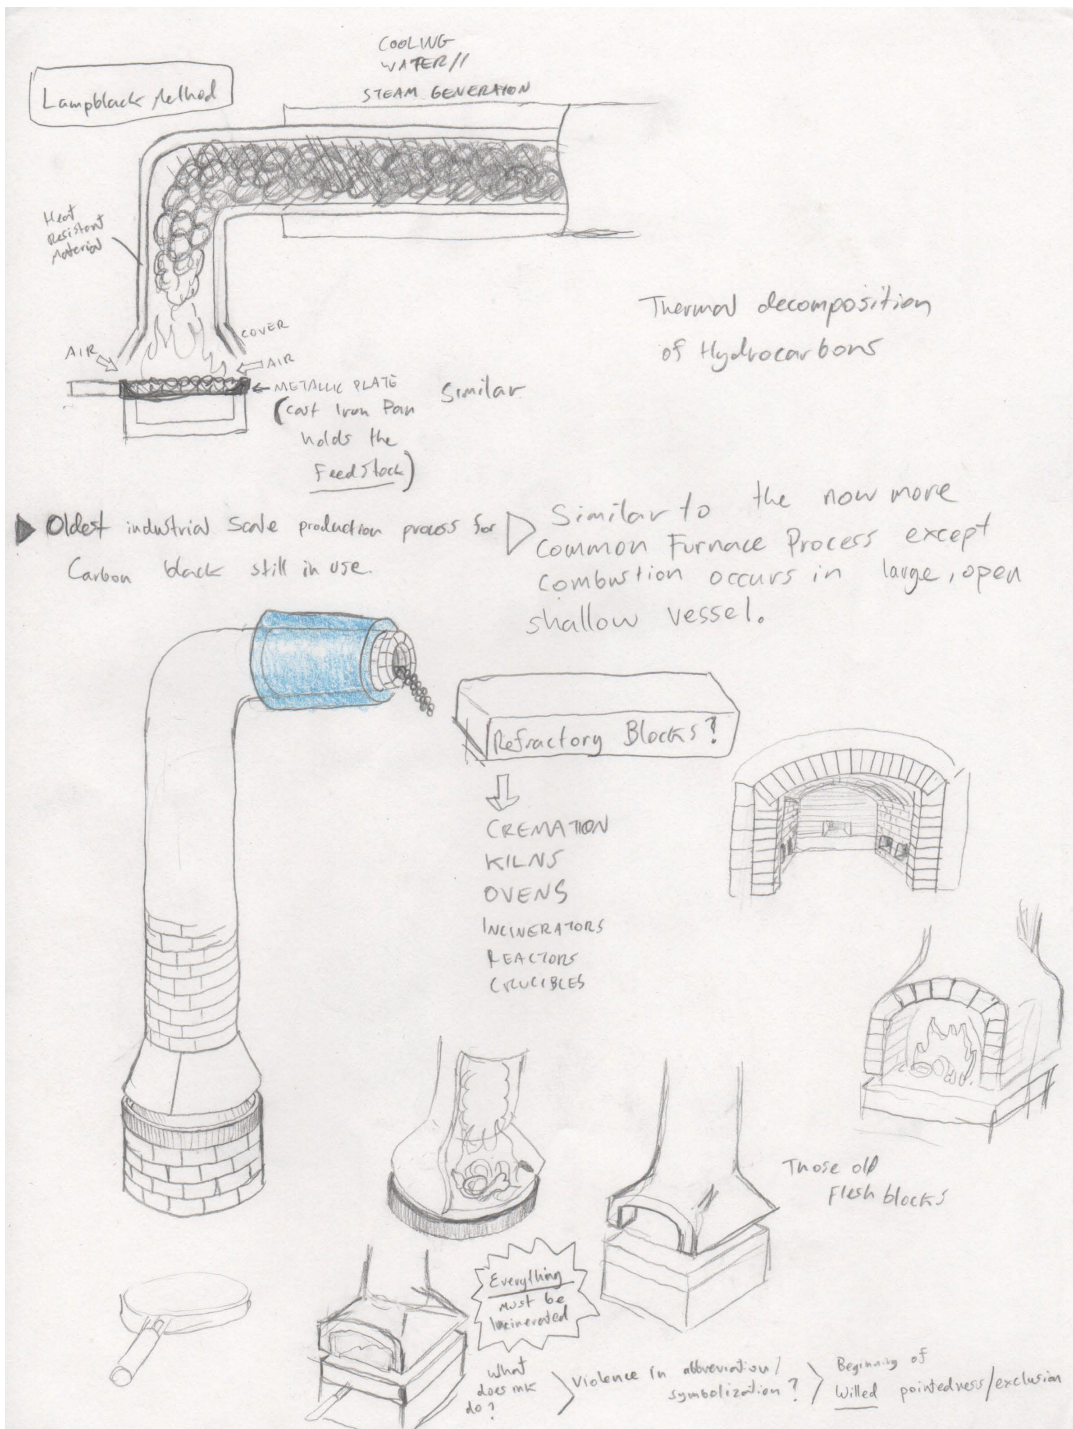 COOLING
WATER//
STEAM GENERATION
Lampblack Method
Heat
Resistant
Material
COVER
AIR
AIR
METALLIC PLATE
(Cast Iron Pan
holds the
Feedstock)
Similar
Thermal decomposition
of Hydrocarbons
Oldest industrial scale production process for
Carbon black still in use.
Similar to the now more
Common Furnace Process except
combustion occurs in large, open
shallow vessel.
Refractory Blocks?
CREMATION
KILNS
OVENS
INCINERATORS
REACTORS
CRUCIBLES
Those old
Flesh blocks
Everything
must be
Incinerated
What
does ink
do?
Violence in abbreviation/
symbolization?
Beginning of
Willed pointedness/exclusion